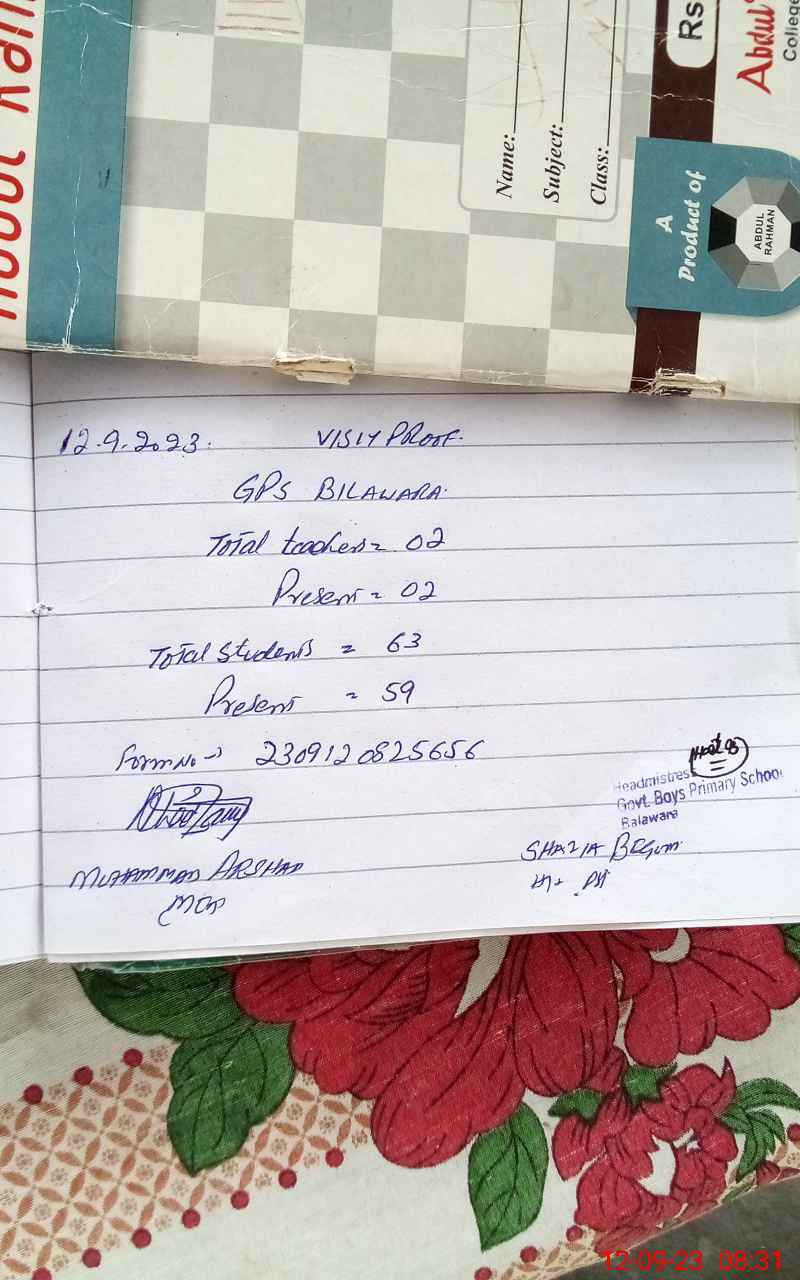 Abdul Rahm
Name:
Subject:
Class:
Rs
Abdul
College
A
Product of
ABDUL
RAHMAN
12.9.2023.
VISIT PROOF.
GPS BILAWARA.
Total teachers = 02
Present = 02
Total Students = 63
Present = 59
Form No → 230912 0825656
Headmistress
Govt. Boys Primary School
Balawara
MUHAMMAD ARSHAD
SHAZIA BEGUM
12-09-23 08:31